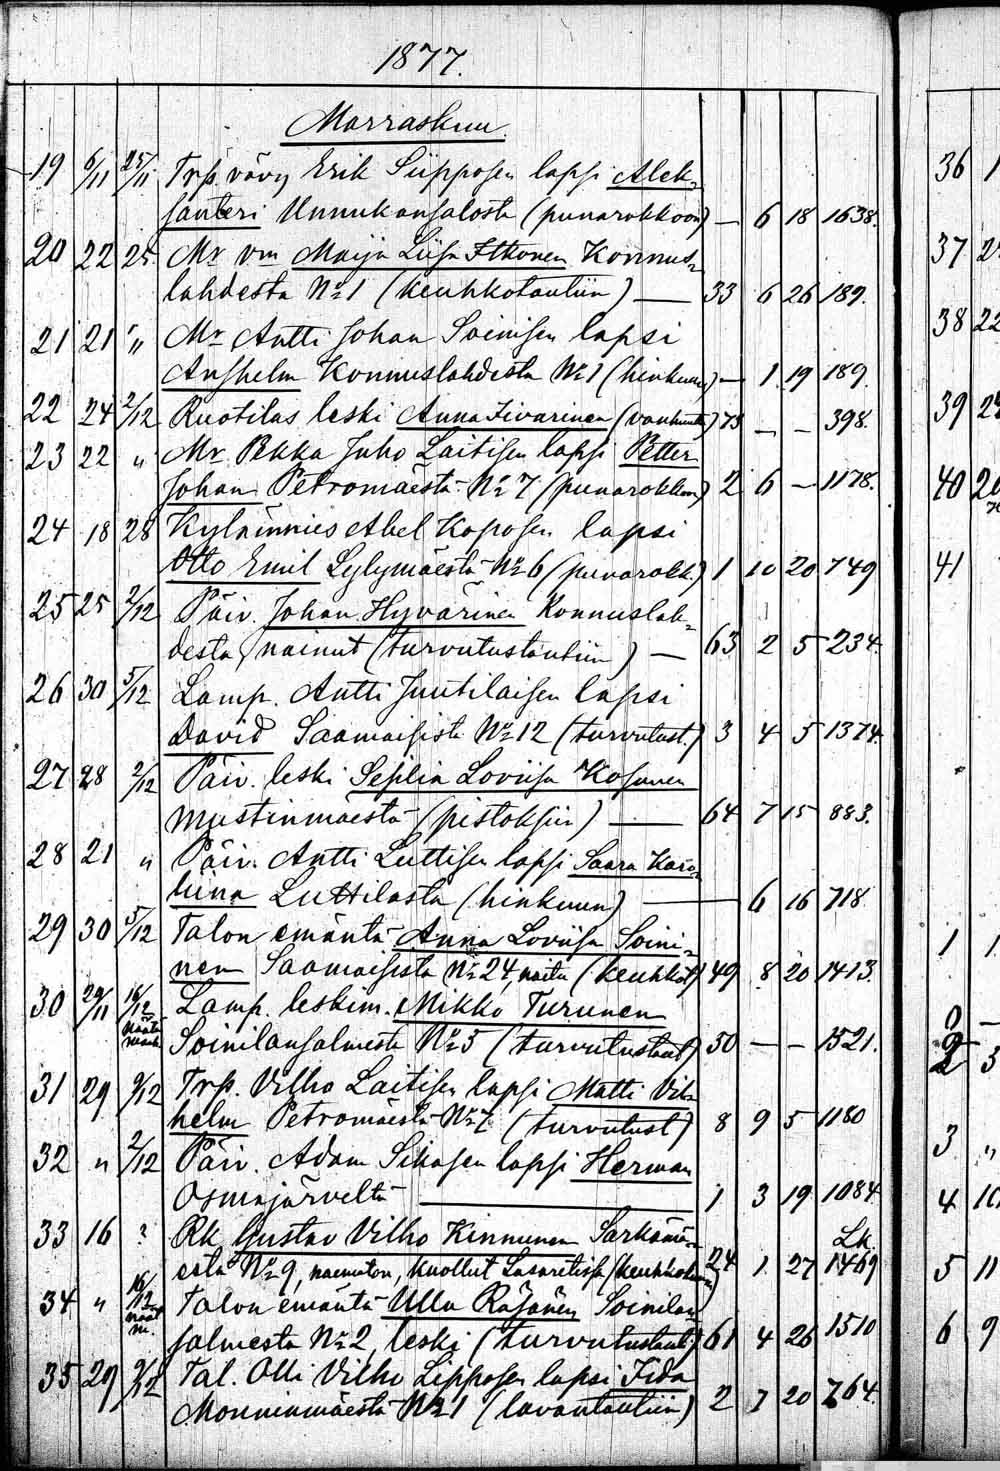 1877.
Marraskuu.
19 6/11 25/11 Trp. vävy Erik Siipposen lapsi Alek-
santeri Unnukansalosta (punarokkoon) — 6 18 1638.
20 22 25 Mr vm Maija Liisa Itkonen Konnus-
lahdesta No 1 (keuhkotautiin) — 33 6 26 189.
21 21 " Mr Antti Johan Soinisen lapsi
Anshelm Konnuslahdesta No 1 (hinkuun) — 1 19 189.
22 24 2/12 Ruotilas leski Anna Iivarinen 73 — — 398.
23 22 " Mr Pekka Juho Laitisen lapsi Petter
Johan Petromäestä No 7 (punarokkoon) 2 6 — 1178.
24 18 28 Kylänmies Abel Koposen lapsi
Otto Emil Lylymäestä No 6 (punarokk.) 1 10 20 749
25 25 2/12 Päiv. Johan Hyvärinen Konnuslah-
desta, nainut (turvutustautiin) — 63 2 5 234.
26 30 5/12 Lamp. Antti Juutilaisen lapsi
David Saamaisista No 12 (turvutust.) 3 4 5 1374.
27 28 2/12 Päiv. leski Sesilia Loviisa Kosunen
Mustinmäestä (pistoksiin) — 64 7 15 883.
28 21 " Päiv. Antti Luttisen lapsi Saara Karo-
liina Luttilasta (hinkuun) — 6 16 718
29 30 5/12 Talon emäntä Anna Loviisa Soini-
nen Saamaisista No 24, naitu (keuhkot) 49 8 20 1413.
30 29/11 16/12 Lamp. leskim. Mikko Turunen
Soinilansalmesta No 5 (turvutustaut) 50 — — 1521.
31 29 9/12 Trp. Vilho Laitisen lapsi Matti Vil-
helm Petromäestä No 7 (turvutust) 8 9 5 1180
32 " 2/12 Päiv. Adam Sikasen lapsi Herman
Osmajärveltä — 1 3 19 1084
33 16 ? Rk Gustav Vilho Kinnunen Särkämä-
estä No 9, naematon, kuollut Lasaretissa 24 1 27 Lk. 1469
34 " 16/12 Talon emäntä Ulla Räsänen Soinilan
salmesta No 2, leski (turvutustaut.) 61 4 26 1510
35 29 9/12 Tal. Olli Vilho Lipposen lapsi Iida
Monninmäestä No 1 (lavantautiin) 2 7 20 764.
36 1
37
38 22
39
40
41
1 1
2 3
3 "
4
5 11
6 9